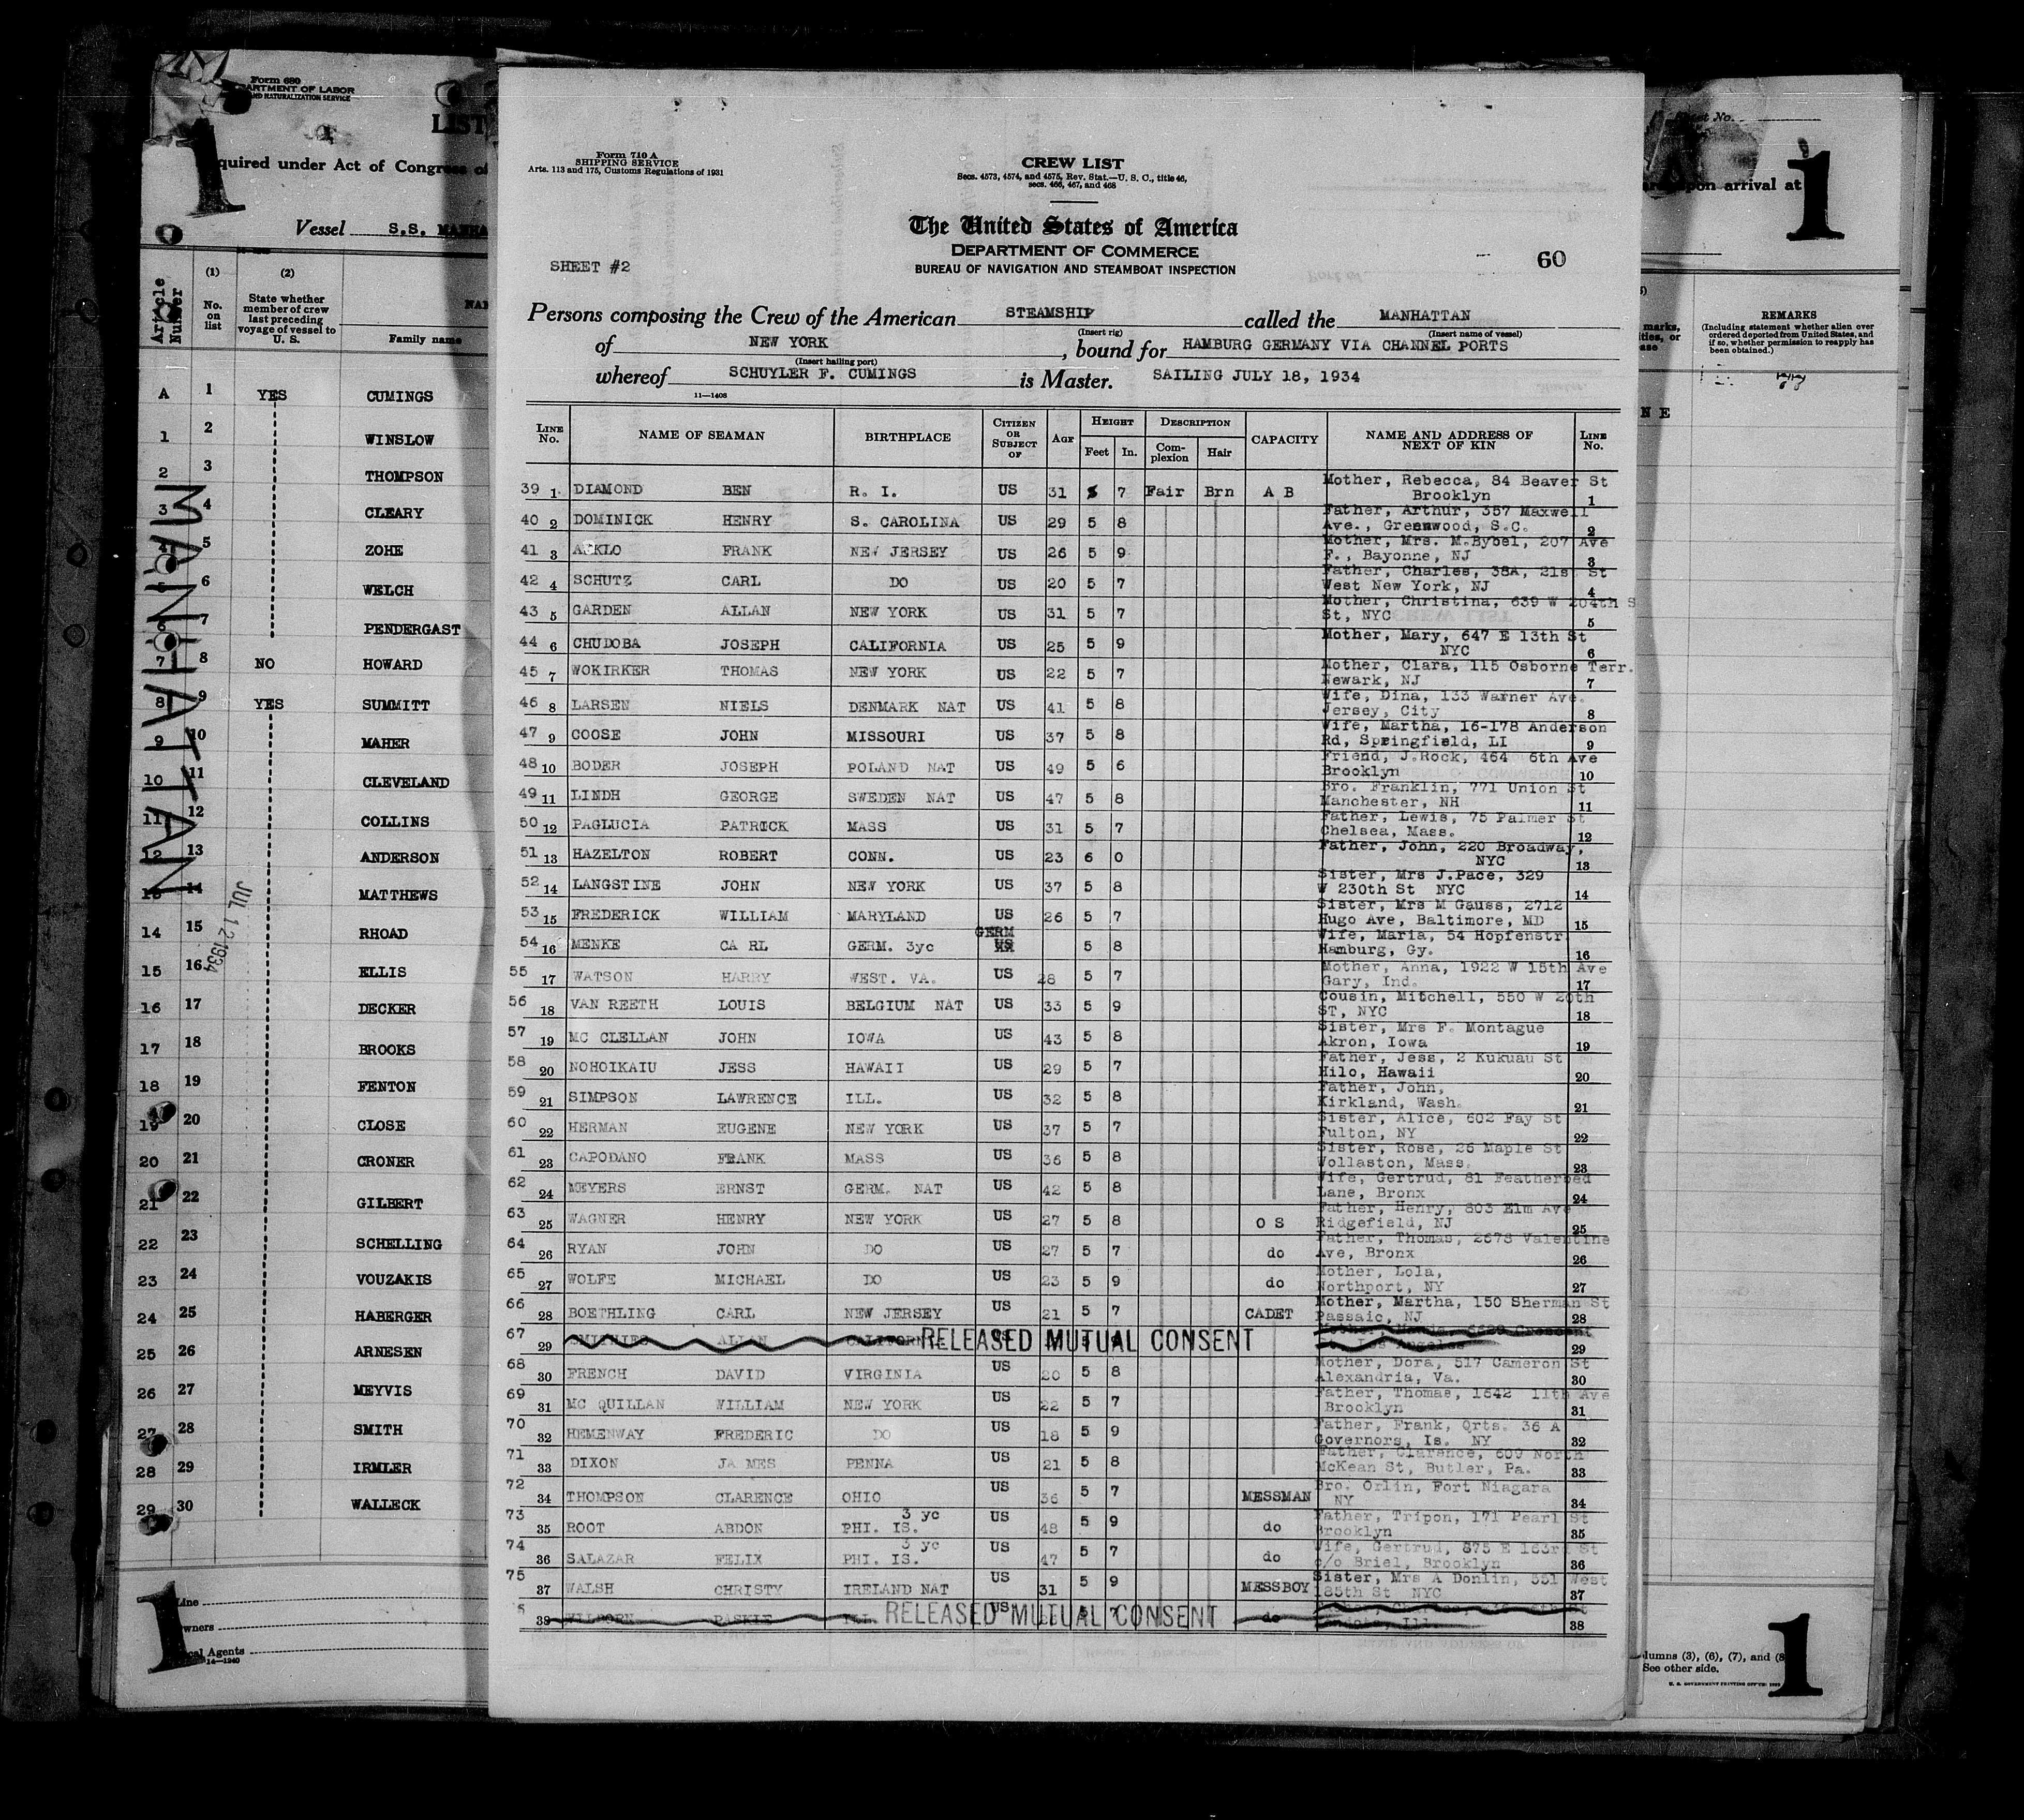 Form 680
ARTMENT OF LABOR
AND NATURALIZATION SERVICE
LIST
quired under Act of Congress of
Vessel S.S. MANHA
Article Number
(1) No. on list
(2) State whether member of crew last preceding voyage of vessel to U. S.
Family name
A 1 YES CUMINGS
1 2 WINSLOW
2 3 THOMPSON
3 4 CLEARY
4 5 ZOHE
6 WELCH
6 7 PENDERGAST
7 8 NO HOWARD
8 9 YES SUMMITT
9 10 MAHER
10 11 CLEVELAND
11 12 COLLINS
12 13 ANDERSON
13 14 MATTHEWS
14 15 RHOAD
15 16 ELLIS
16 17 DECKER
17 18 BROOKS
18 19 FENTON
19 20 CLOSE
20 21 CRONER
21 22 GILBERT
22 23 SCHELLING
23 24 VOUZAKIS
24 25 HABERGER
25 26 ARNESEN
26 27 MEYVIS
27 28 SMITH
28 29 IRMLER
29 30 WALLECK
MANHATTAN
JUL 12 1934
Line
wners
cal Agents
14—1240
1
1
Form 710 A
SHIPPING SERVICE
Arts. 113 and 175, Customs Regulations of 1931
CREW LIST
Secs. 4573, 4574, and 4575, Rev. Stat.—U. S. C., title 46,
secs. 466, 467, and 468
The United States of America
DEPARTMENT OF COMMERCE
BUREAU OF NAVIGATION AND STEAMBOAT INSPECTION
SHEET #2
60
Persons composing the Crew of the American STEAMSHIP called the MANHATTAN
(Insert rig) (Insert name of vessel)
of NEW YORK, bound for HAMBURG GERMANY VIA CHANNEL PORTS
(Insert hailing port)
whereof SCHUYLER F. CUMINGS is Master. SAILING JULY 18, 1934
11—1408
LINE No. NAME OF SEAMAN BIRTHPLACE CITIZEN OR SUBJECT OF AGE HEIGHT Feet In. DESCRIPTION Complexion Hair CAPACITY NAME AND ADDRESS OF NEXT OF KIN LINE No.
39 1 DIAMOND BEN R. I. US 31 5 7 Fair Brn A B Mother, Rebecca, 84 Beaver St Brooklyn 1
40 2 DOMINICK HENRY S. CAROLINA US 29 5 8 Father, Arthur, 357 Maxwell Ave., Greenwood, S.C. 2
41 3 FRANK NEW JERSEY US 26 5 9 Mother, Mrs. M.Bybel, 207 Ave F., Bayonne, NJ 3
42 4 SCHUTZ CARL DO US 20 5 7 Father, Charles, 38A, 21st St West New York, NJ 4
43 5 GARDEN ALLAN NEW YORK US 31 5 7 Mother, Christina, 639 W 204th S St, NYC 5
44 6 CHUDOBA JOSEPH CALIFORNIA US 25 5 9 Mother, Mary, 647 E 13th St NYC 6
45 7 WOKIRKER THOMAS NEW YORK US 22 5 7 Mother, Clara, 115 Osborne Terr. Newark, NJ 7
46 8 LARSEN NIELS DENMARK NAT US 41 5 8 Wife, Dina, 133 Warner Ave. Jersey, City 8
47 9 COOSE JOHN MISSOURI US 37 5 8 Wife, Martha, 16-178 Anderson Rd, Springfield, LI 9
48 10 BODER JOSEPH POLAND NAT US 49 5 6 Friend, J.Rock, 464 6th Ave Brooklyn 10
49 11 LINDH GEORGE SWEDEN NAT US 47 5 8 Bro. Franklin, 771 Union St Manchester, NH 11
50 12 PAGLUCIA PATRICK MASS US 31 5 7 Father, Lewis, 75 Palmer St Chelsea, Mass. 12
51 13 HAZELTON ROBERT CONN. US 23 6 0 Father, John, 220 Broadway, NYC 13
52 14 LANGSTINE JOHN NEW YORK US 37 5 8 Sister, Mrs J.Pace, 329 W 230th St NYC 14
53 15 FREDERICK WILLIAM MARYLAND US 26 5 7 Sister, Mrs M Gauss, 2712 Hugo Ave, Baltimore, MD 15
54 16 MENKE CA RL GERM. 3yc GERM 5 8 Wife, Maria, 54 Hopfenstr Hamburg, Gy. 16
55 17 WATSON HARRY WEST. VA. US 28 5 7 Mother, Anna, 1922 W 15th Ave Gary, Ind. 17
56 18 VAN REETH LOUIS BELGIUM NAT US 33 5 9 Cousin, Mitchell, 550 W 20th ST, NYC 18
57 19 MC CLELLAN JOHN IOWA US 43 5 8 Sister, Mrs F. Montague Akron, Iowa 19
58 20 NOHOIKAIU JESS HAWAII US 29 5 7 Father, Jess, 2 Kukuau St Hilo, Hawaii 20
59 21 SIMPSON LAWRENCE ILL. US 32 5 8 Father, John, Kirkland, Wash. 21
60 22 HERMAN EUGENE NEW YORK US 37 5 7 Sister, Alice, 602 Fay St Fulton, NY 22
61 23 CAPODANO FRANK MASS US 36 5 8 Sister, Rose, 26 Maple St Wollaston, Mass. 23
62 24 MEYERS ERNST GERM. NAT US 42 5 8 Wife, Gertrud, 81 Featherbed Lane, Bronx 24
63 25 WAGNER HENRY NEW YORK US 27 5 8 O S Father, Henry, 803 Elm Ave Ridgefield, NJ 25
64 26 RYAN JOHN DO US 27 5 7 do Father, Thomas, 2678 Valentine Ave, Bronx 26
65 27 WOLFE MICHAEL DO US 23 5 9 do Mother, Lola, Northport, NY 27
66 28 BOETHLING CARL NEW JERSEY US 21 5 7 CADET Mother, Martha, 150 Sherman St Passaic, NJ 28
67 29 ALLAN RELEASED MUTUAL CONSENT 29
68 30 FRENCH DAVID VIRGINIA US 20 5 8 Mother, Dora, 517 Cameron St Alexandria, Va. 30
69 31 MC QUILLAN WILLIAM NEW YORK US 22 5 7 Father, Thomas, 1642 11th Ave Brooklyn 31
70 32 HEMENWAY FREDERIC DO US 18 5 9 Father, Frank, Qrts. 36 A Governors, Is. NY 32
71 33 DIXON JA MES PENNA US 21 5 8 Father, Clarence, 609 North McKean St, Butler, Pa. 33
72 34 THOMPSON CLARENCE OHIO US 36 5 7 MESSMAN Bro. Orlin, Fort Niagara NY 34
73 35 ROOT ABDON PHI. IS. 3 yc US 48 5 9 do Father, Tripon, 171 Pearl St Brooklyn 35
74 36 SALAZAR FELIX PHI. IS. 3 yc US 47 5 7 do Wife, Gertrud, 875 E 163rd St c/o Briel, Brooklyn 36
75 37 WALSH CHRISTY IRELAND NAT US 31 5 9 MESSBOY Sister, Mrs A Donlin, 551 West 185th St NYC 37
38 ILL. RELEASED MUTUAL CONSENT US 7 do 38
Sheet No.
upon arrival at
1
REMARKS
(Including statement whether alien ever ordered deported from United States, and if so, whether permission to reapply has been obtained.)
N E
lumns (3), (6), (7), and (8
See other side.
U. S. GOVERNMENT PRINTING OFFICE
1